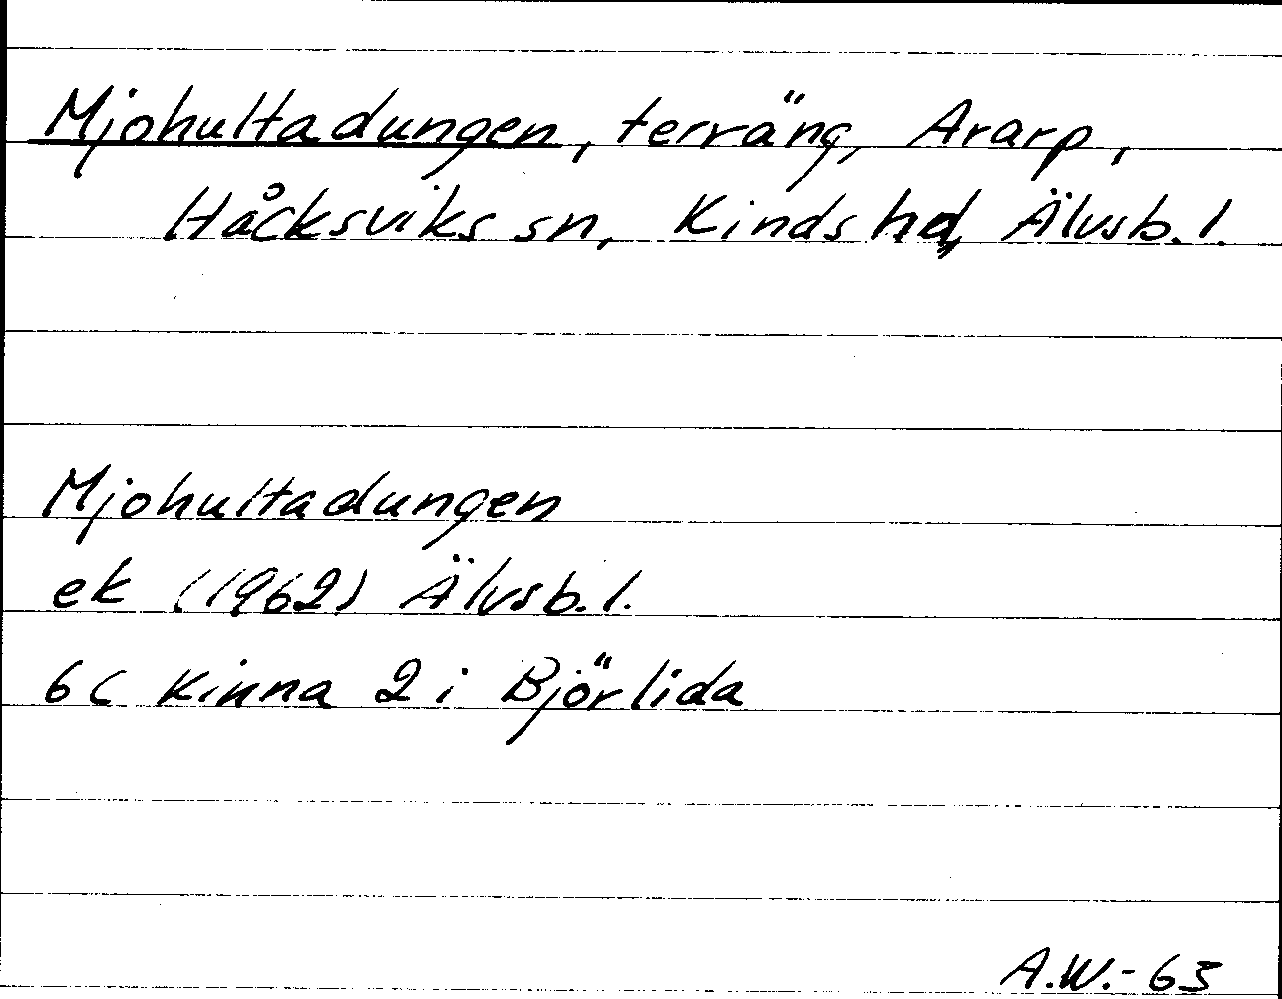 Mjohultadungen, terräng, Ararp,
Håcksviks sn, Kinds hd, Älvsb. l.
Mjohultadungen
ek (1962) Älvsb. l.
6C Kinna 2 i Björlida
A.W.-63